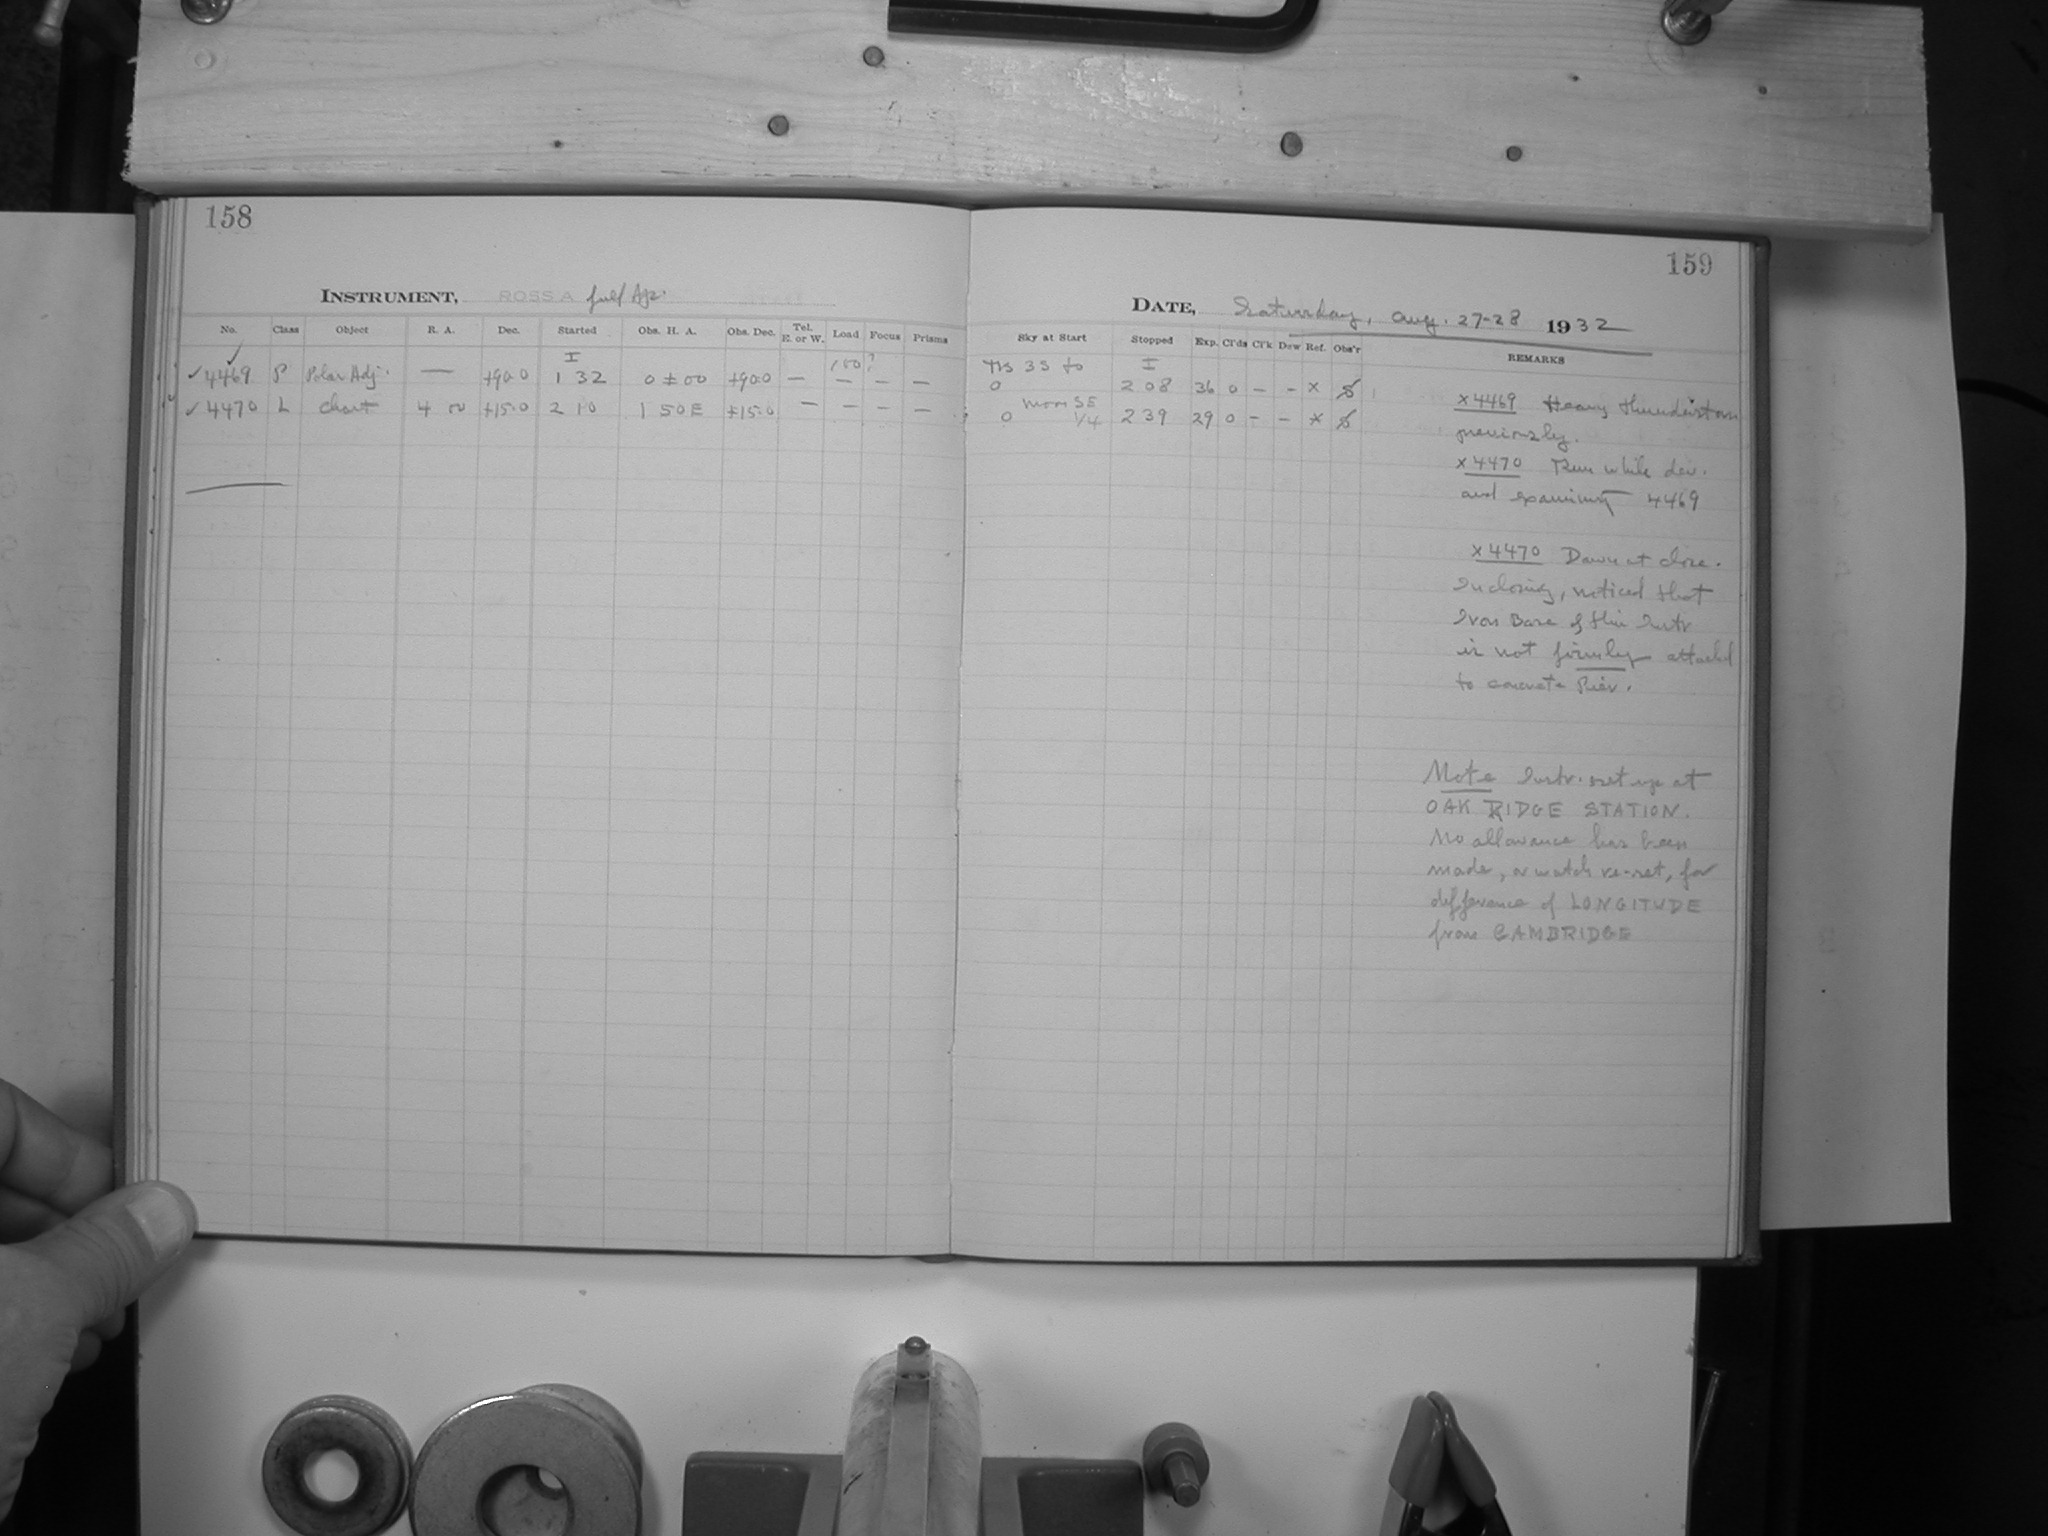 158
INSTRUMENT, ROSS A full Ap.
No. Class Object R. A. Dec. Started Obs. H. A. Obs. Dec. Tel. E. or W. Load Focus Prisms
I 150?
✓4469 P Polar Adj. — +90.0 1 32 0 ± 00 +90.0 — — — —
✓4470 L Chart 4 00 +15.0 2 10 1 50 E +15.0 — — — —
159
DATE, Saturday, Aug. 27-28 1932
Sky at Start Stopped Exp. Cl'ds Cl'k Dew Ref. Obs'r REMARKS
35 to I
0 2 08 36 0 – – x
Moon SE
0 1/4 2 39 29 0 – – x
x4469 Heavy thunderstorm
previously.
x4470 Run while dev.
and examining 4469
x4470 Dawn at close.
In closing, noticed that
Iron Base of this Instr
is not firmly attached
to concrete Pier.
Note Instr. set up at
OAK RIDGE STATION.
No allowance has been
made, or watch re-set, for
difference of LONGITUDE
from CAMBRIDGE